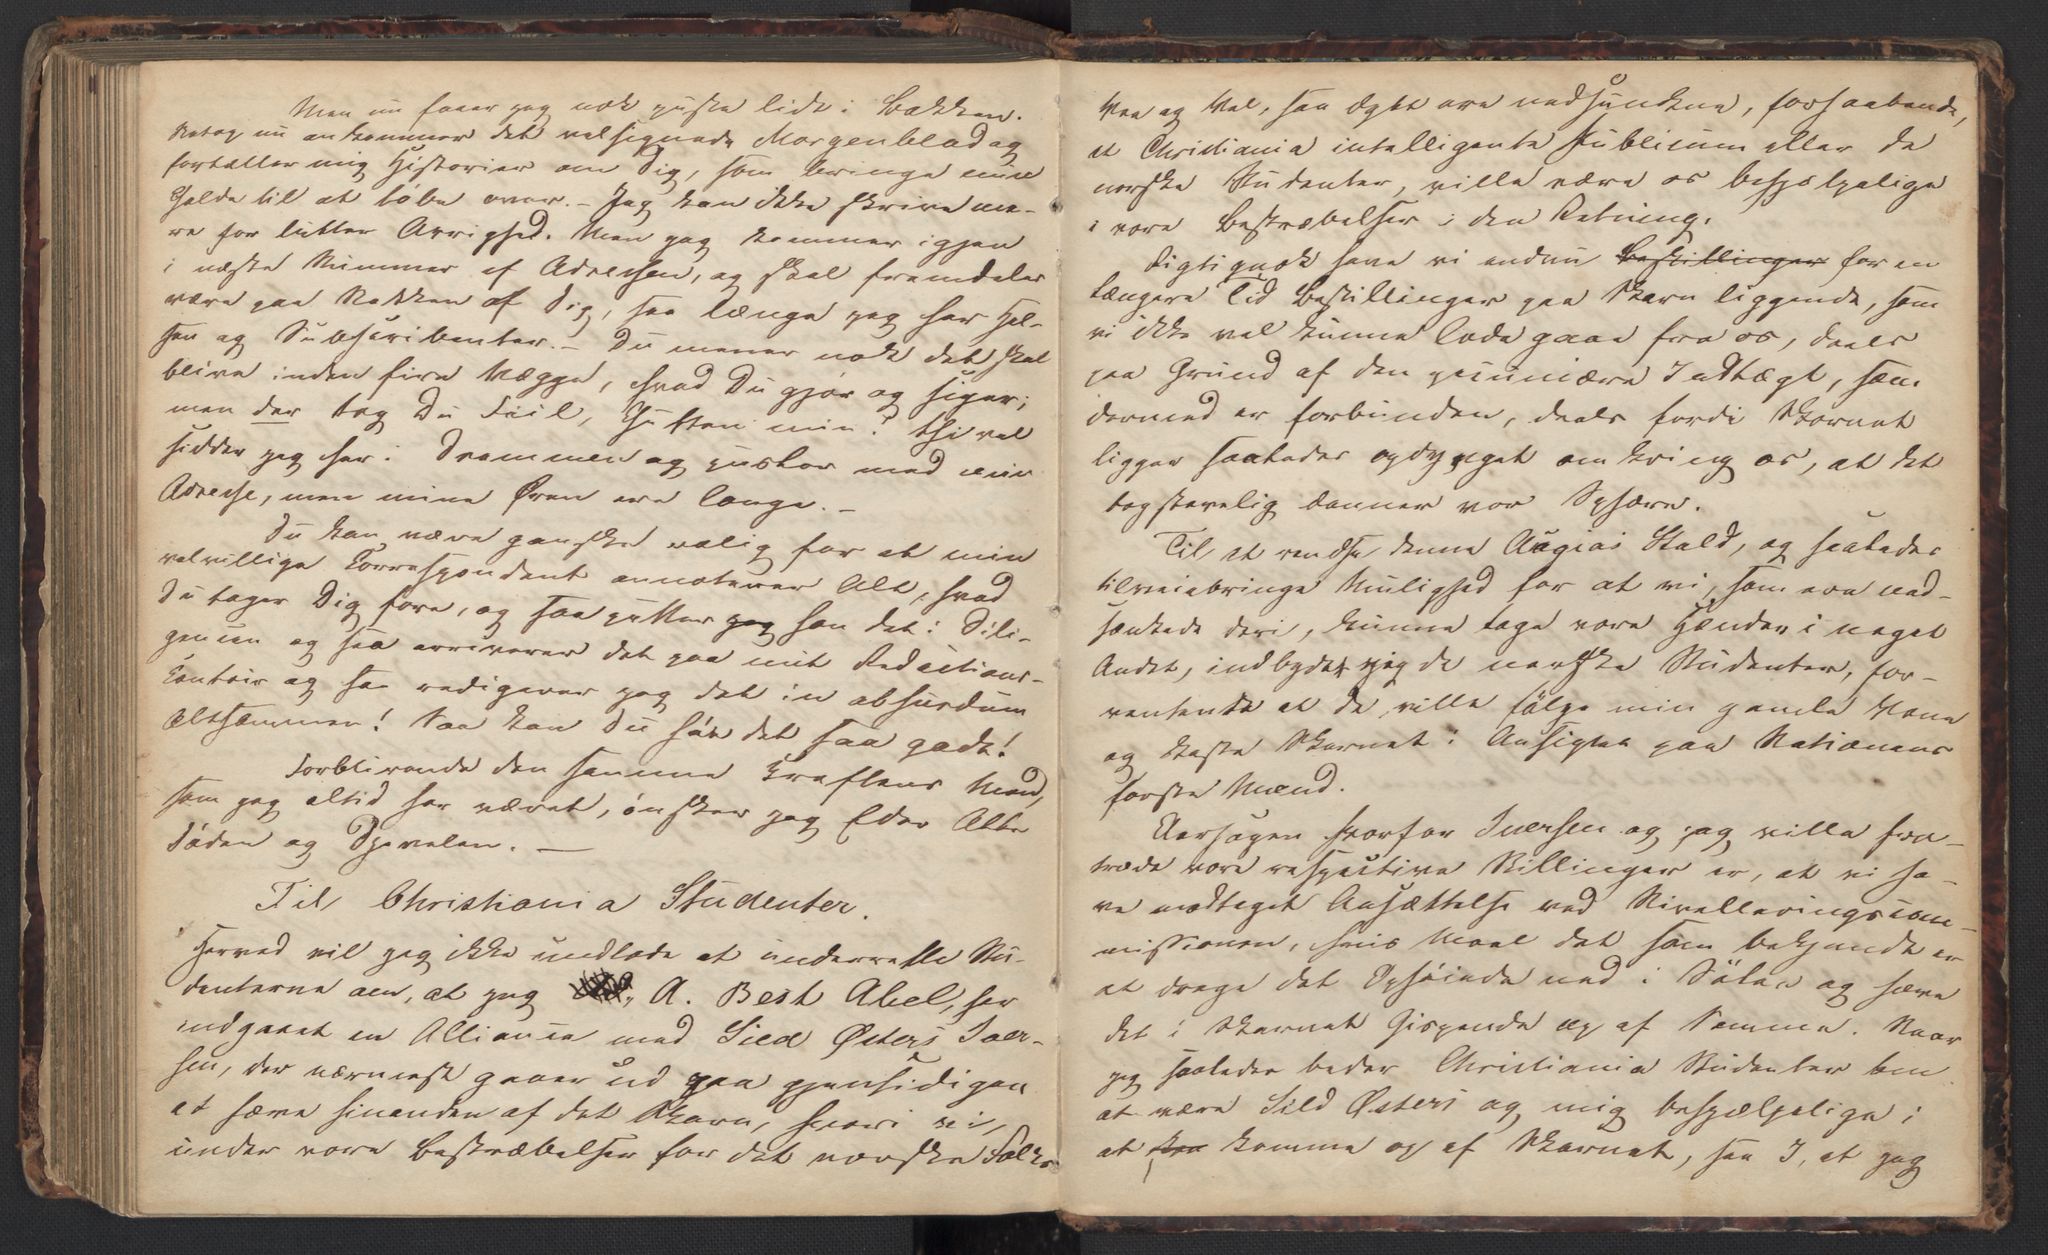 Men nu faaer jeg nok puste lidt i Bakken.
Netop nu ankommer det velsignede Morgenblad og
fortæller mig Historier om Dig, som bringe min
Galde til at løbe over. – Jeg kan ikke skrive me-
re for lutter Arrighed. Men jeg kommer igjen
i næste Nummer af Adressen, og skal fremdeles
være paa Nakken af Dig, saa længe jeg har Hel-
sen og Subscribenter. – Du mener nok det skal
blive inden fire Vægge, hvad Du gjør og siger;
men der tog Du Feil, Gutten min! Thi vel
sidder jeg her i Drammen og puster med min
Adresse, men mine Øren ere lange. –
Du kan være ganske rolig for at min
velvillige Correspondent annoterer Alt, hvad
Du tager Dig fore, og saa putter han det i Dili-
gencen og saa arriverer det paa mit Redactions-
Contoir og saa redigerer jeg det in absurdum
Altsammen! Saa kan Du have det saa godt!
Forblivende den samme Kraftens Mand,
som jeg altid har været, ønsker jeg Eder Alle
Døden og Djevelen. —
Til Christiania Studenter.
Herved vil jeg ikke undlade at underrette Stu-
denterne om, at jeg A. Best Abel, har
indgaaet en Alliance med Sild Østers Iver-
sen, der nærmest gaaer ud paa gjensidigen
at hæve hinanden af det Skarn, hvori vi,
under vore Bestræbelser for det norske Folks
Vee og Vel, saa dybt ere nedsunkene, forhaabende,
at Christiania intelligente Publicum eller de
norske Studenter, ville være os behjælpelige
i vore Bestræbelser i den Retning.
Rigtignok have vi endnu Bestillinger for en
længere Tid Bestillinger paa Skarn liggende, som
vi ikke vel kunne lade gaae fra os, deels
paa Grund af den pecuniære Indtægt, som
dermed er forbunden, deels fordi Skarnet
ligger saaledes opdynget omkring os, at det
bogstavelig danner vor Sphære.
Til at rendse denne Augias Stald, og saaledes
tilveiebringe Mulighed for at vi, som ere ned-
sænkede deri, kunne tage vore Hænder i noget
Andet, indbydes de norske Studenter, for-
ventende at de ville følge min gamle Vane
og kaste Skarnet i Ansigtet paa Nationens
første Mænd.
Aarsagen hvorfor Iversen og jeg ville fra-
træde vore respective Stillinger er, at vi ha-
ve modtaget Ansættelse ved Nivelleringscom-
missionen, hvis Maal det som bekjendt er
at drage det Ophøiede ned i Sølen og hæve
det i Skarnet Gispende op af Samme. Naar
jeg saaledes beder Christiania Studenter om
at være Sild Østers og mig behjælpelige i
at komme op af Skarnet, saa I, at jeg